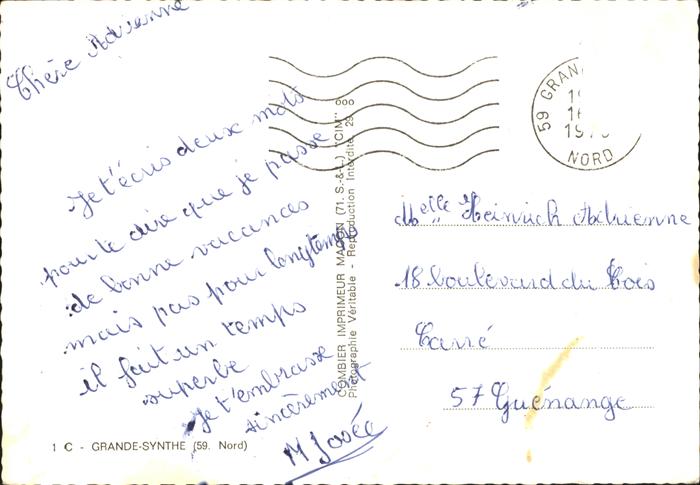 Chère Adrienne
Je t'écris deux mots
pour te dire que je passe
de bonne vacances
mais pas pour longtemps
il fait un temps
superbe
Je t'embrasse
sincèrement
M José
1 C - GRANDE-SYNTHE (59. Nord)
COMBIER IMPRIMEUR MACON (71. S.-&-L.) "CIM"
Photographie Véritable - Reproduction Interdite
59 GRAN
NORD
Melle Heinrich Adrienne
18 boulevard du Bois
Carré
57 Guénange